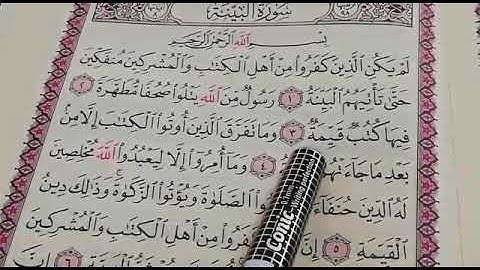 سُورَةُ البَيِّنَةِ
بِسْمِ ٱللَّهِ ٱلرَّحْمَٰنِ ٱلرَّحِيمِ
لَمْ يَكُنِ ٱلَّذِينَ كَفَرُوا۟ مِنْ أَهْلِ ٱلْكِتَٰبِ وَٱلْمُشْرِكِينَ مُنفَكِّينَ
حَتَّىٰ تَأْتِيَهُمُ ٱلْبَيِّنَةُ ١ رَسُولٌ مِّنَ ٱللَّهِ يَتْلُوا۟ صُحُفًا مُّطَهَّرَةً ٢
فِيهَا كُتُبٌ قَيِّمَةٌ ٣ وَمَا تَفَرَّقَ ٱلَّذِينَ أُوتُوا۟ ٱلْكِتَٰبَ إِلَّا مِنۢ
بَعْدِ مَا جَآءَتْهُمُ ٤ وَمَآ أُمِرُوٓا۟ إِلَّا لِيَعْبُدُوا۟ ٱللَّهَ مُخْلِصِينَ
لَهُ ٱلدِّينَ حُنَفَآءَ ٱلصَّلَوٰةَ وَيُؤْتُوا۟ ٱلزَّكَوٰةَ وَذَٰلِكَ دِينُ
ٱلْقَيِّمَةِ ٥ إِنَّ مِنْ أَهْلِ ٱلْكِتَٰبِ وَٱلْمُشْرِكِينَ
٦ إِنَّ
Conic